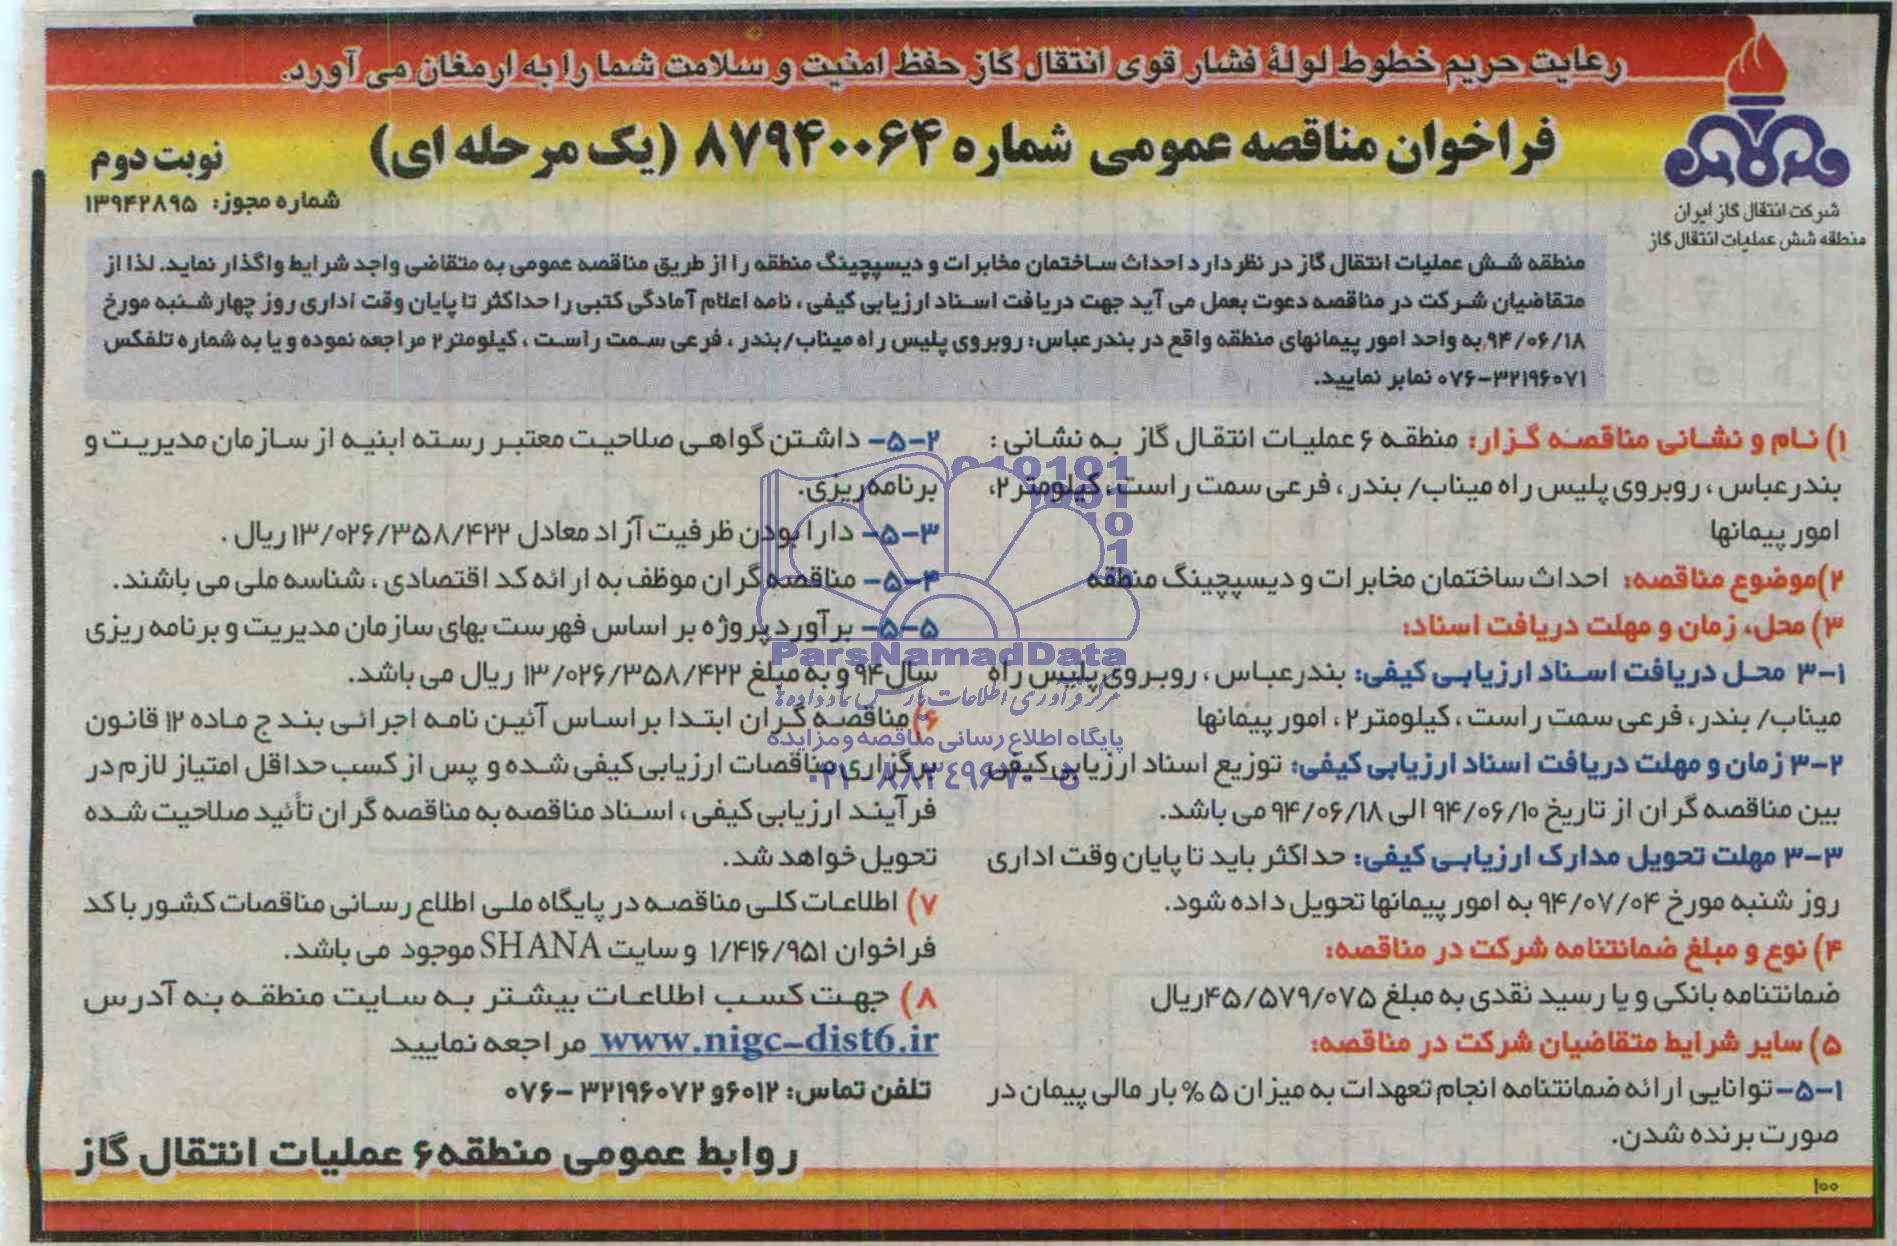 رعایت حریم خطوط لولهٔ فشار قوی انتقال گاز حفظ امنیت و سلامت شما را به ارمغان می آورد.
فراخوان مناقصه عمومی شماره ۸۷۹۴۰۰۶۴ (یک مرحله ای)
نوبت دوم
شماره مجوز: ۱۳۹۴۲۸۹۵
شرکت انتقال گاز ایران
منطقه شش عملیات انتقال گاز
منطقه شش عملیات انتقال گاز در نظر دارد احداث ساختمان مخابرات و دیسپچینگ منطقه را از طریق مناقصه عمومی به متقاضی واجد شرایط واگذار نماید. لذا از
متقاضیان شرکت در مناقصه دعوت بعمل می آید جهت دریافت اسناد ارزیابی کیفی، نامه اعلام آمادگی کتبی را حداکثر تا پایان وقت اداری روز چهارشنبه مورخ
۹۴/۰۶/۱۸ به واحد امور پیمانهای منطقه واقع در بندرعباس: روبروی پلیس راه میناب/بندر، فرعی سمت راست، کیلومتر ۲ مراجعه نموده و یا به شماره تلفکس
۰۷۶-۳۲۱۹۶۰۷۱ نمابر نمایید.
۱) نام و نشانی مناقصه گزار: منطقه ۶ عملیات انتقال گاز به نشانی:
بندرعباس، روبروی پلیس راه میناب/ بندر، فرعی سمت راست، کیلومتر ۲،
امور پیمانها
۲)موضوع مناقصه: احداث ساختمان مخابرات و دیسپچینگ منطقه
۳) محل، زمان و مهلت دریافت اسناد:
۳-۱ محل دریافت اسناد ارزیابی کیفی: بندرعباس، روبروی پلیس راه
میناب/ بندر، فرعی سمت راست، کیلومتر ۲، امور پیمانها
۳-۲ زمان و مهلت دریافت اسناد ارزیابی کیفی: توزیع اسناد ارزیابی کیفی
بین مناقصه گران از تاریخ ۹۴/۰۶/۱۰ الی ۹۴/۰۶/۱۸ می باشد.
۳-۳ مهلت تحویل مدارک ارزیابی کیفی: حداکثر باید تا پایان وقت اداری
روز شنبه مورخ ۹۴/۰۷/۰۴ به امور پیمانها تحویل داده شود.
۴) نوع و مبلغ ضمانتنامه شرکت در مناقصه:
ضمانتنامه بانکی و یا رسید نقدی به مبلغ ۴۵/۵۷۹/۰۷۵ریال
۵) سایر شرایط متقاضیان شرکت در مناقصه:
۵-۱-توانایی ارائه ضمانتنامه انجام تعهدات به میزان ۵% بار مالی پیمان در
صورت برنده شدن.
۵-۲- داشتن گواهی صلاحیت معتبر رسته ابنیه از سازمان مدیریت و
برنامه‌ریزی.
۵-۳- دارا بودن ظرفیت آزاد معادل ۱۳/۰۲۶/۳۵۸/۴۲۲ ریال.
۵-۴- مناقصه گران موظف به ارائه کد اقتصادی، شناسه ملی می باشند.
۵-۵- برآورد پروژه بر اساس فهرست بهای سازمان مدیریت و برنامه ریزی
سال ۹۴ و به مبلغ ۱۳/۰۲۶/۳۵۸/۴۲۲ ریال می باشد.
۶)مناقصه گران ابتدا بر اساس آئین نامه اجرائی بند ج ماده ۱۲ قانون
برگزاری مناقصات ارزیابی کیفی شده و پس از کسب حداقل امتیاز لازم در
فرآیند ارزیابی کیفی، اسناد مناقصه به مناقصه گران تأئید صلاحیت شده
تحویل خواهد شد.
۷) اطلاعات کلی مناقصه در پایگاه ملی اطلاع رسانی مناقصات کشور با کد
فراخوان ۱/۴۱۶/۹۵۱ و سایت SHANA موجود می باشد.
۸) جهت کسب اطلاعات بیشتر به سایت منطقه به آدرس
www.nigc-dist6.ir مراجعه نمایید
تلفن تماس: ۶۰۱۲و ۳۲۱۹۶۰۷۲ -۰۷۶
روابط عمومی منطقه۶ عملیات انتقال گاز
۱۰۰
ParsNamadData
مرکز فرآوری اطلاعات پارس نماد داده‌ها
پایگاه اطلاع رسانی مناقصه و مزایده
۰۲۱-۸۸۳۴۹۶۷۰-۵